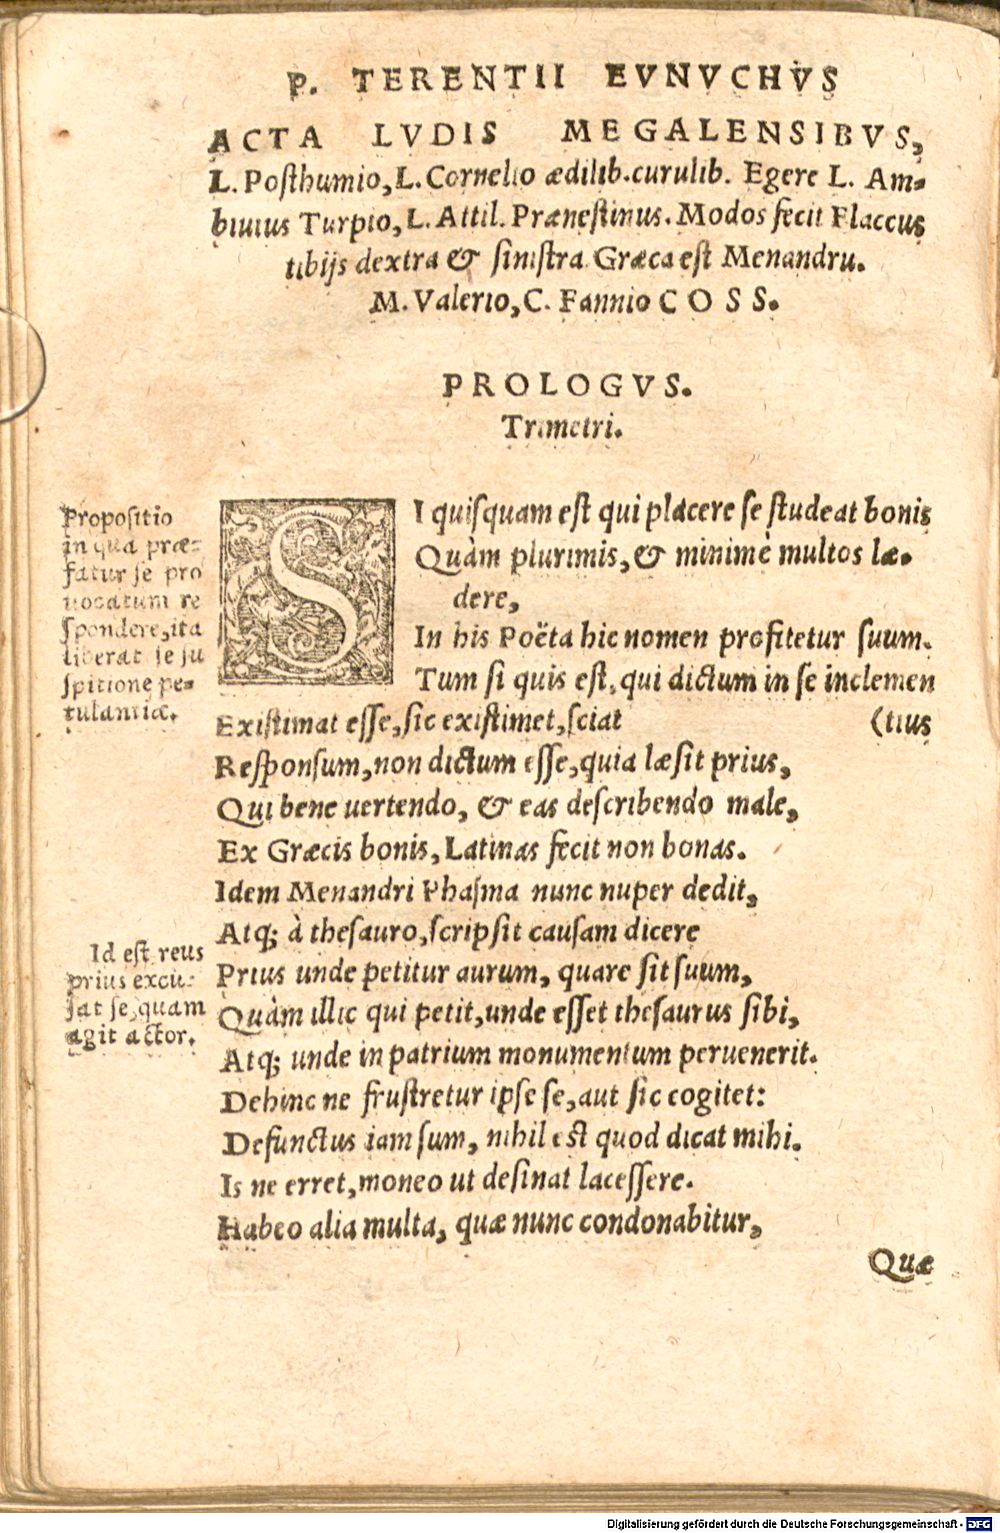 P. TERENTII EVNVCHVS
ACTA LVDIS MEGALENSIBVS,
L. Posthumio, L. Cornelio ædilib. curulib. Egere L. Am-
biuius Turpio, L. Attil. Prænestinus. Modos fecit Flaccus
tibijs dextra & sinistra Græca est Menandru.
M. Valerio, C. Fannio COSS.
PROLOGVS.
Trimetri.
Propositio
in qua præ-
fatur se pro
uocatum re
spondere, ita
liberat se su
spitione pe-
tulantiæ.
SI quisquam est qui placere se studeat bonis
Quàm plurimis, & minimè multos læ-
dere,
In his Poëta hic nomen profitetur suum.
Tum si quis est, qui dictum in se inclemen
Existimat esse, sic existimet, sciat (tius
Responsum, non dictum esse, quia læsit prius,
Qui bene uertendo, & eas describendo male,
Ex Græcis bonis, Latinas fecit non bonas.
Idem Menandri Phasma nunc nuper dedit,
Atq; à thesauro, scripsit causam dicere
Id est reus
prius excu-
sat se, quam
agit actor.
Prius unde petitur aurum, quare sit suum,
Quàm illic qui petit, unde esset thesaurus sibi,
Atq; unde in patrium monumentum peruenerit.
Dehinc ne frustretur ipse se, aut sic cogitet:
Defunctus iam sum, nihil est quod dicat mihi.
Is ne erret, moneo ut desinat lacessere.
Habeo alia multa, quæ nunc condonabitur,
Quæ
Digitalisierung gefördert durch die Deutsche Forschungsgemeinschaft - DFG